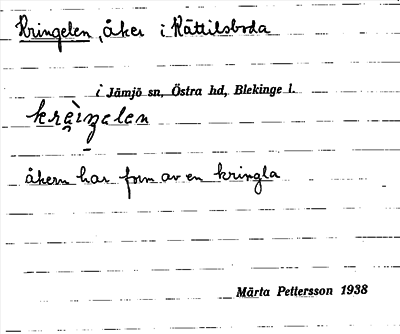 Kringelen, åker i Rättilsboda
i Jämjö sn, Östra hd, Blekinge l.
åkern har form av en kringla
Märta Pettersson 1938